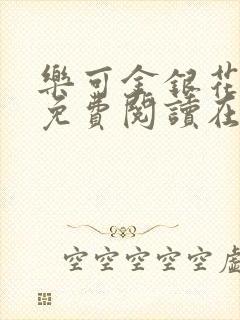 樂可金銀花
免費閱讀在
空空空空空虛